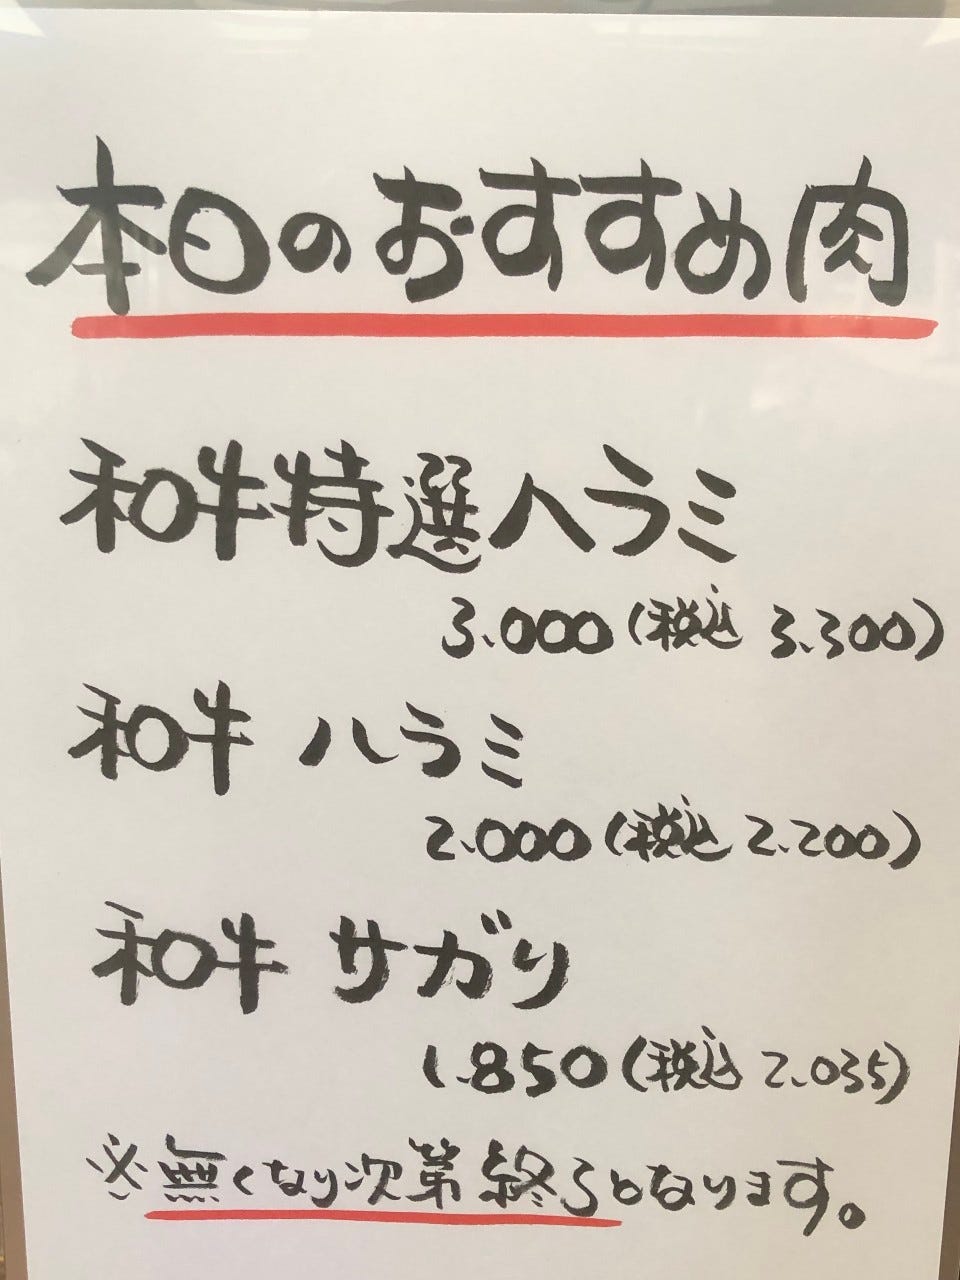 本日のおすすめ肉
和牛特選ハラミ
3.000(税込 3.300)
和牛 ハラミ
2.000(税込 2.200)
和牛 サガリ
1.850(税込 2.035)
※無くなり次第終了となります。